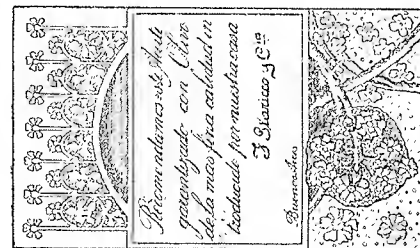 Recomendamos este Aceite
garantizado con Oliva
de la mas fina calidad in
troducido por nuestra casa
Buenos Aires